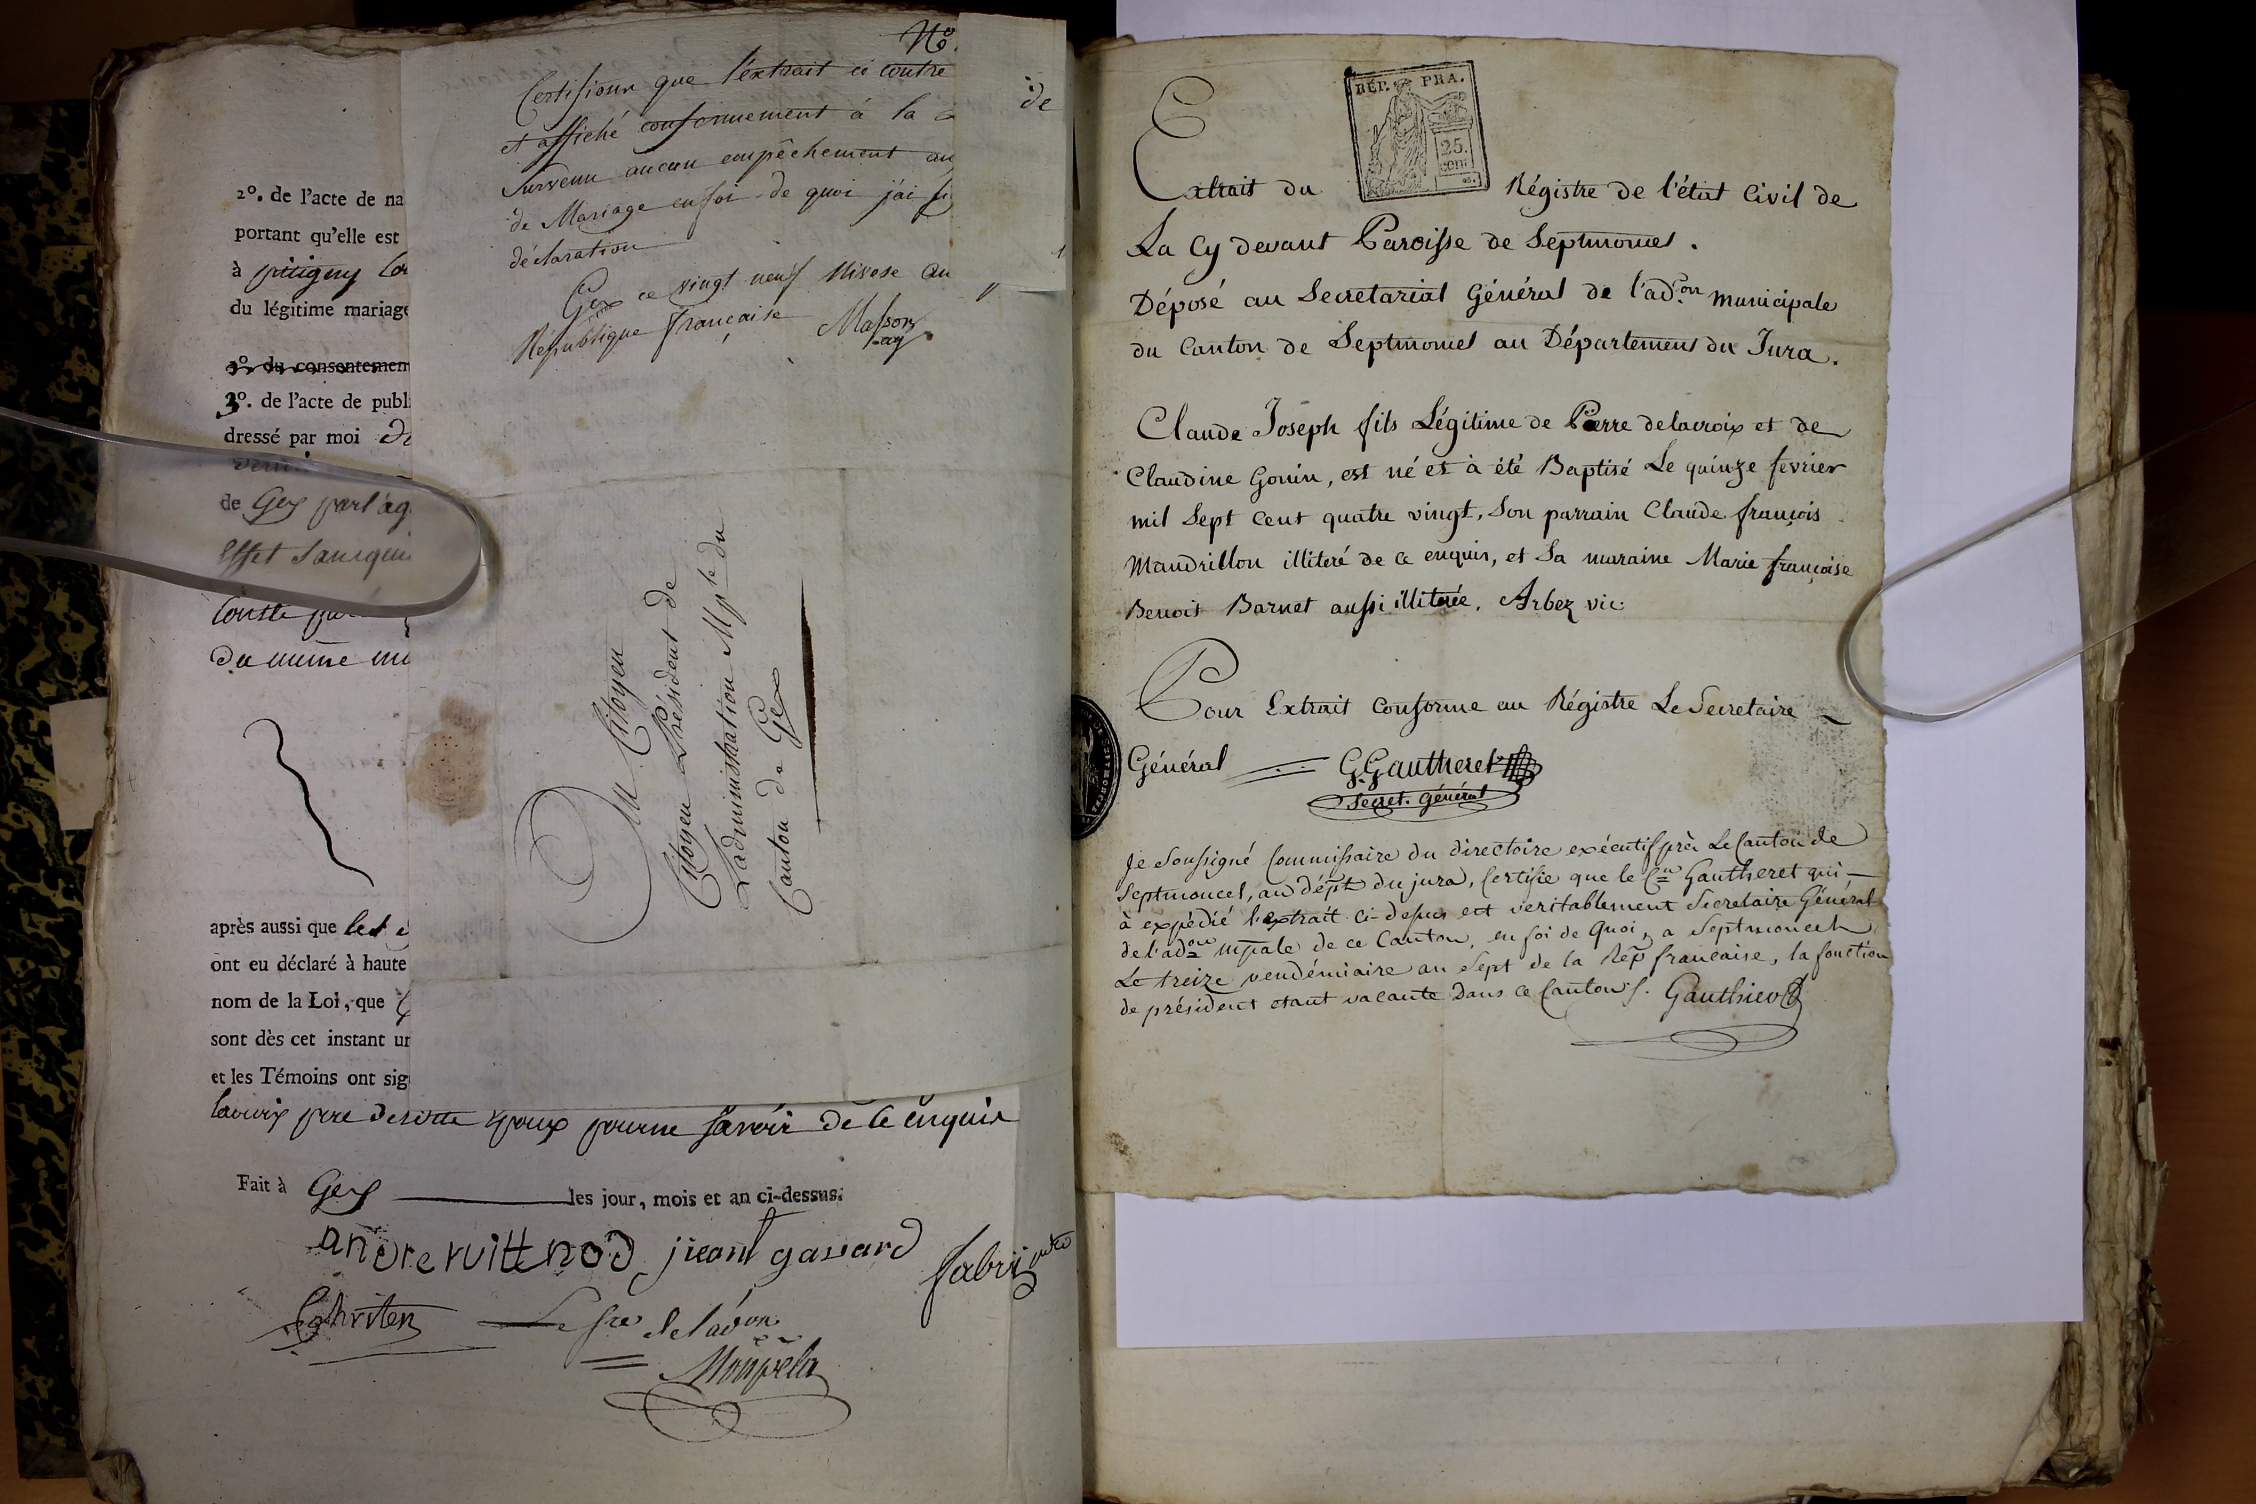 2°. de l'acte de na
portant qu'elle est
à
du légitime mariage
3°. du consentemen
3°. de l'acte de publ
dressé par moi
de Gex par l'ag
Effet
Conste par
du même
après aussi que les
ont eu déclaré à haute
nom de la Loi, que
sont dès cet instant un
et les Témoins ont sig
lacroix père de époux pour ne savoir de ce enquis
Fait à Gex les jour, mois et an ci-dessus.
andre vuittnod jieant gassard
fabri
Le sre de l'adon
N°.
de
Certifions que l'extrait ci contre
et affiché conformement à la
survenu aucun empêchement au
de Mariage en foi de quoi j'ai
déclaration
Gex ce vingt neuf Nivose an
République française Masson
ag
Au Citoyen
Citoyen Président de
L'administration Mple du
Canton de Gex
RÉP. FRA.
25.
cent
Extrait du Régistre de l'état Civil de
La Cy devant Paroisse de Septmoncel.
Déposé au Secretariat Général de l'adon municipale
du Canton de Septmoncel au Département du Jura.
Claude Joseph fils Légitime de Pierre delacroix et de
Claudine Gonin, est né et à été Baptisé Le quinze fevrier
mil Sept cent quatre vingt, Son parrain Claude françois
Mandrillon illiteré de ce enquis, et Sa maraine Marie françoise
Benoit Barnet aussi illiterée. Arbez vic:
Pour Extrait Conforme au Régistre Le Secretaire
Général G. Gautheret
Secret. Général
Je Soussigné Commissaire du directoire exécutif près Le Canton de
Septmoncel, au dépt du jura, Certifie que le Cen Gautheret qui
à expédié l'extrait ci-dessus est veritablement Secretaire Général
de l'adon mpale de ce Canton, en foi de Quoi, a Septmoncel
Le treize vendémiaire an Sept de la Rep francaise, la fonction
de président etant vacante dans ce Canton. Gauthier